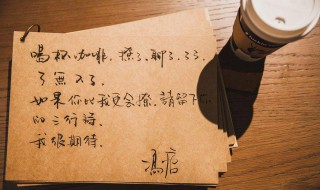 喝杯咖啡，撩了，聊了，了了，
了無不了。
如果你比我更会撩，請留下你
的三行詩。
我很期待。